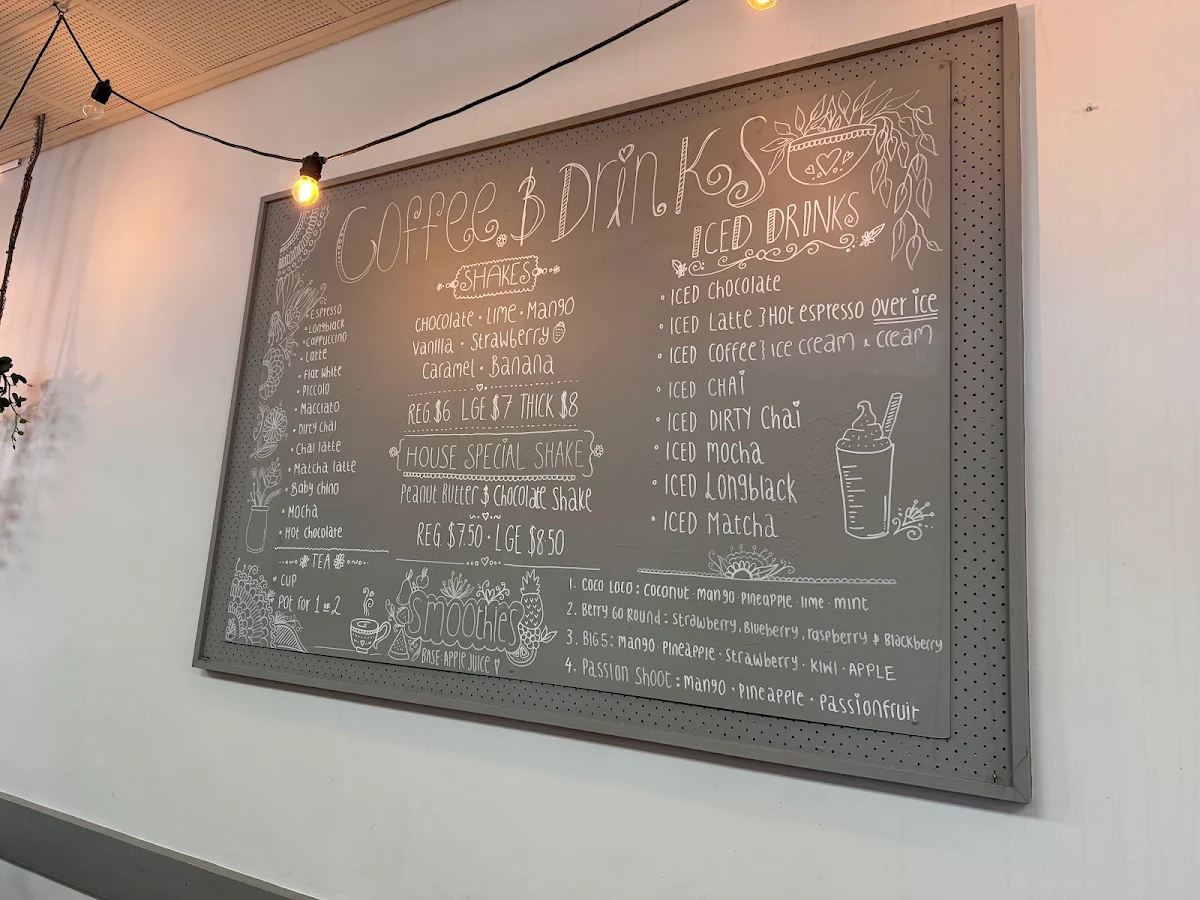 Coffee & Drinks
• Espresso
• Longblack
• Cappuccino
• Latte
• Flat White
• Piccolo
• Macciato
• Dirty Chai
• Chai latte
• Matcha latte
• Baby chino
• Mocha
• Hot chocolate
TEA
• CUP
• Pot for 1 or 2
SHAKES
Chocolate • Lime • Mango
Vanilla • Strawberry
Caramel • Banana
REG $6 LGE $7 THICK $8
HOUSE SPECIAL SHAKE
Peanut Butter & Chocolate Shake
REG. $7.50 • LGE $8.50
ICED DRINKS
• ICED Chocolate
• ICED Latte } Hot espresso over ice
• ICED Coffee } ice cream & cream
• ICED CHAi
• ICED DIRTY Chai
• ICED Mocha
• ICED Longblack
• ICED Matcha
Smoothies
BASE: APPLE JUICE
1. COCO LOCO : Coconut • mango • Pineapple • lime • mint
2. Berry Go Round : Strawberry, Blueberry, raspberry & Blackberry
3. BIG 5 : Mango • Pineapple • Strawberry • KIWI • APPLE
4. Passion Shoot : Mango • Pineapple • Passionfruit